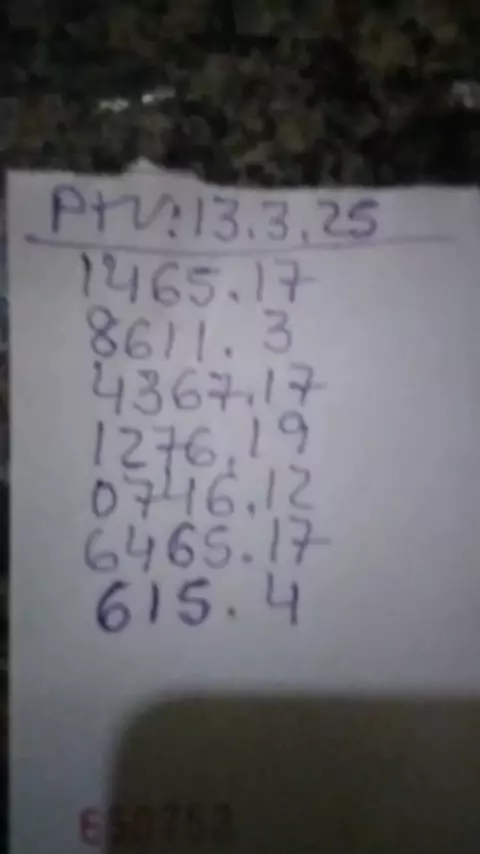 PTV:13.3.25
1465.17
8611.3
4367.17
1276.19
0746.12
6465.17
615.4